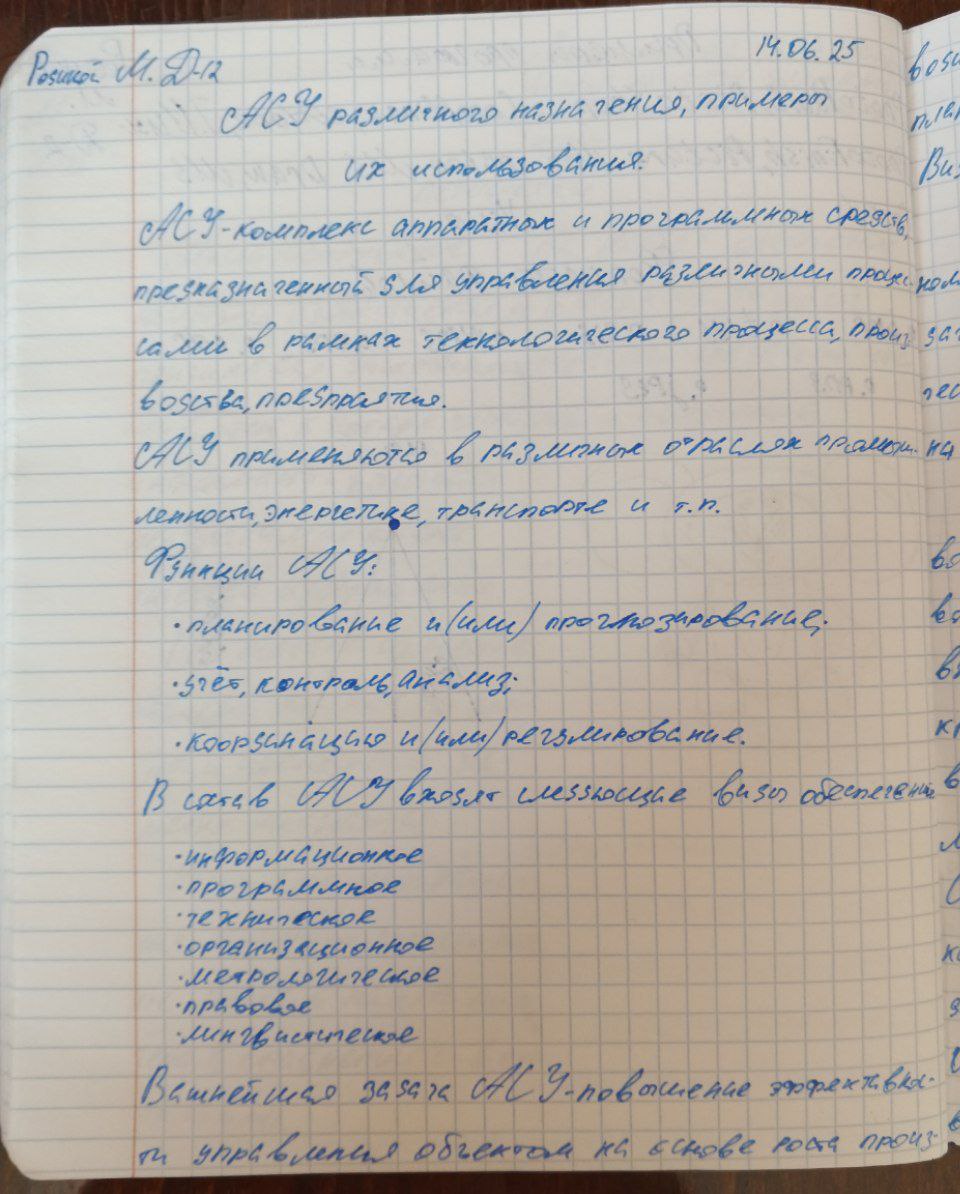 М. Д-12
14.06.25
АСУ различного назначения, примеры
их использования.
АСУ-комплекс аппаратных и программных средств,
предназначенный для управления различными процес
сами в рамках технологического процесса, произ
водства, предприятия.
АСУ применяются в различных отраслях промыш-
ленности, энергетике, транспорте и т.п.
Функции АСУ:
·планирование и(или) прогнозирование;
·учёт, контроль, анализ;
·координацию и(или) регулирование.
В состав АСУ входят следующие виды обеспечения
·информационное
·программное
·техническое
·организационное
·метрологическое
·правовое
·лингвистическое
Важнейшая задача АСУ-повышение эффективнос-
ти управления объектом на основе роста произ-